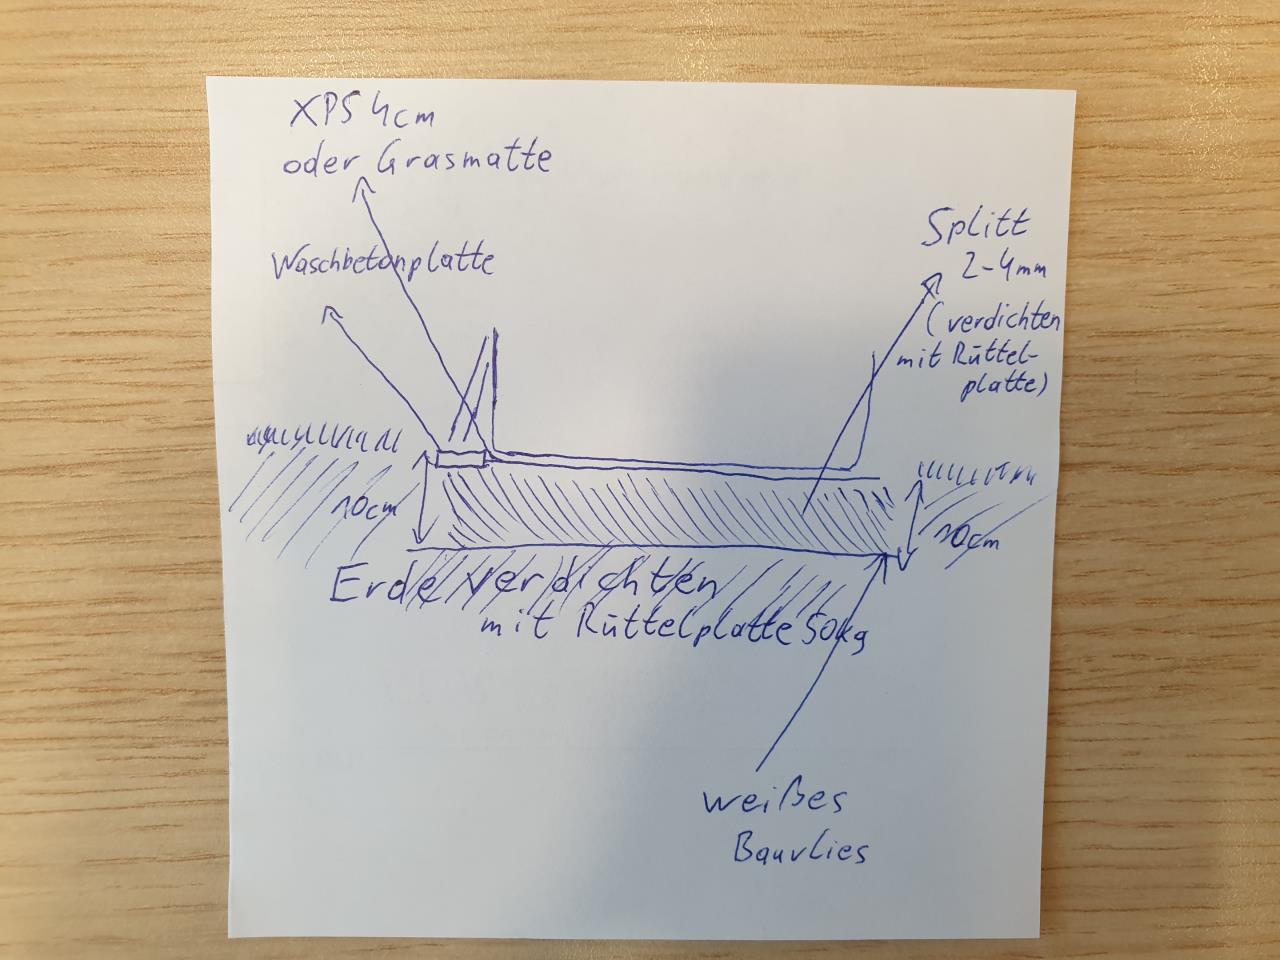 XPS 4cm
oder Grasmatte
Waschbetonplatte
Splitt
2-4mm
(verdichten
mit Rüttel-
platte)
10cm
10cm
Erde verdichten
mit Rüttelplatte 50kg
weißes
Bauvlies